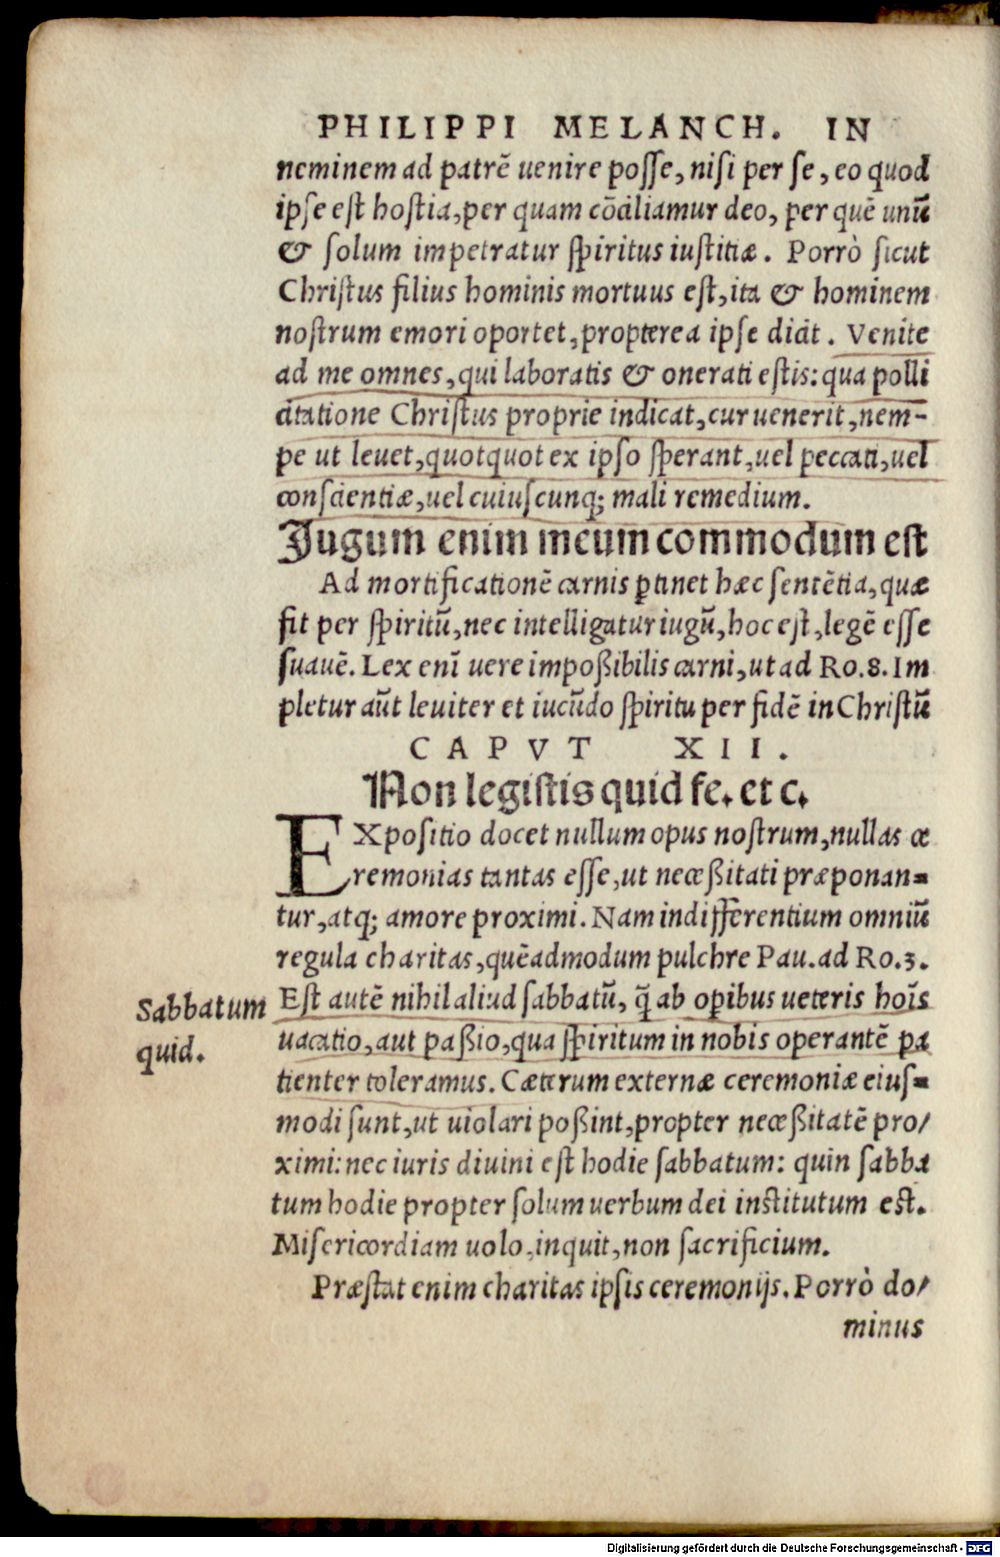 PHILIPPI MELANCH. IN
neminem ad patrē uenire posse, nisi per se, eo quod
ipse est hostia, per quam cōciliamur deo, per quē unū
& solum impetratur spiritus iustitiæ. Porrò sicut
Christus filius hominis mortuus est, ita & hominem
nostrum emori oportet, propterea ipse dicit. Venite
ad me omnes, qui laboratis & onerati estis: qua polli
citatione Christus proprie indicat, cur uenerit, nem-
pe ut leuet, quotquot ex ipso sperant, uel peccati, uel
conscientiæ, uel cuiuscunq; mali remedium.
Jugum enim meum commodum est
Ad mortificationē carnis ꝑtinet hæc sentētia, quæ
fit per spiritū, nec intelligatur iugū, hoc est, legē esse
suauē. Lex enī uere impoßibilis carni, ut ad Ro. 8. Im
pletur aūt leuiter et iucūdo spiritu per fidē in Christū
CAPVT XII.
Non legistis quid fe. et c.
EXpositio docet nullum opus nostrum, nullas cæ
remonias tantas esse, ut neceßitati præponan-
tur, atq; amore proximi. Nam indifferentium omniū
regula charitas, quēadmodum pulchre Pau. ad Ro. 3.
Sabbatum
quid.
Est autē nihil aliud sabbatū, q̄ ab oꝑibus ueteris hoīs
uacatio, aut paßio, qua spiritum in nobis operantē pa
tienter toleramus. Cæterum externæ ceremoniæ eius-
modi sunt, ut uiolari poßint, propter neceßitatē pro/
ximi: nec iuris diuini est hodie sabbatum: quin sabba
tum hodie propter solum uerbum dei institutum est.
Misericordiam uolo, inquit, non sacrificium.
Præstat enim charitas ipsis ceremonijs. Porrò do/
minus
Digitalisierung gefördert durch die Deutsche Forschungsgemeinschaft - DFG